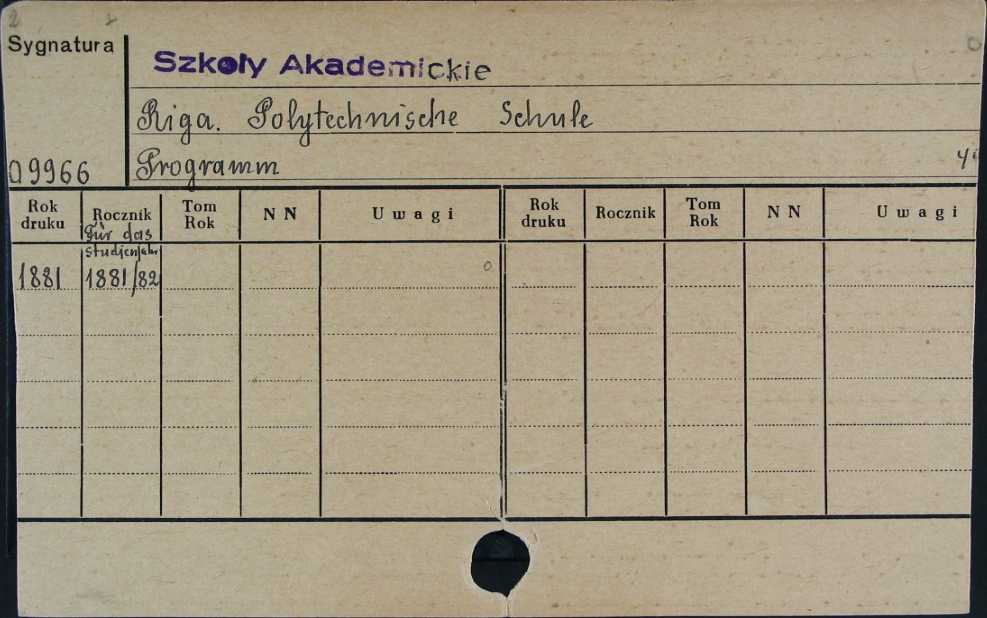 Sygnatura
Szkoły Akademickie
Riga. Polytechnische Schule
09966
Programm
Rok druku Rocznik Tom Rok NN Uwagi Rok druku Rocznik Tom Rok NN Uwagi
Für das
Studienjahr
1881 1881/82